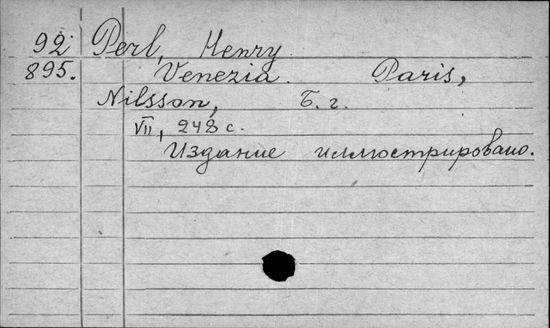 92 Perl, Henry
895. Venezia. Paris,
Nilsson, Б. г.
VII, 248 с.
Издание иллюстрировано.